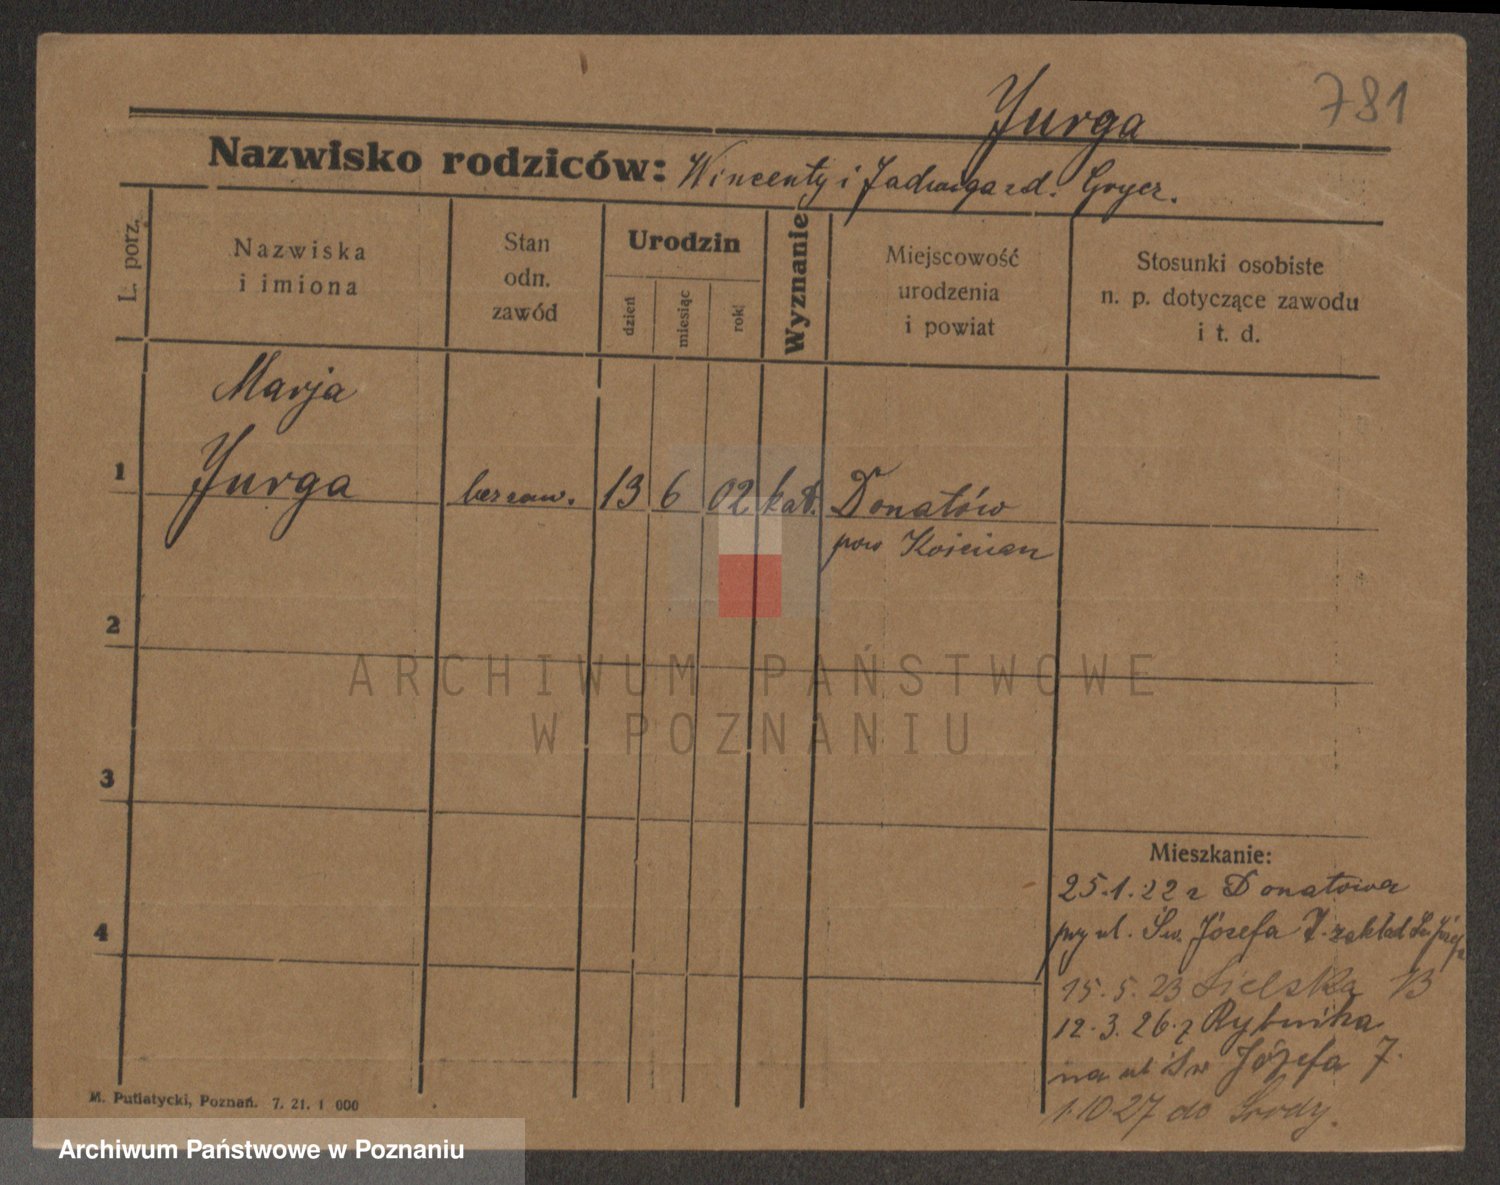 Jurga
781
Nazwisko rodziców: Wincenty i Jadwiga zd. Grycz.
L. porz.
Nazwiska
i imiona
Stan
odn.
zawód
Urodzin
dzień
miesiąc
rok
Wyznanie
Miejscowość
urodzenia
i powiat
Stosunki osobiste
n. p. dotyczące zawodu
i t. d.
Marja
1 Jurga bezzaw. 13 6 02 kat. Donatów
pow Kościan
2
ARCHIWUM PAŃSTWOWE
W POZNANIU
3
Mieszkanie:
25.1.22 z Donatowa
przy ul. Św. Józefa 7. zakład Św. Józefa
4
15.5.23 Sielska 13
12.3.26. z Rybnika
na ul Św Józefa 7.
1.10 27 do Środy.
M. Putiatycki, Poznań. 7. 21. 1 000
Archiwum Państwowe w Poznaniu